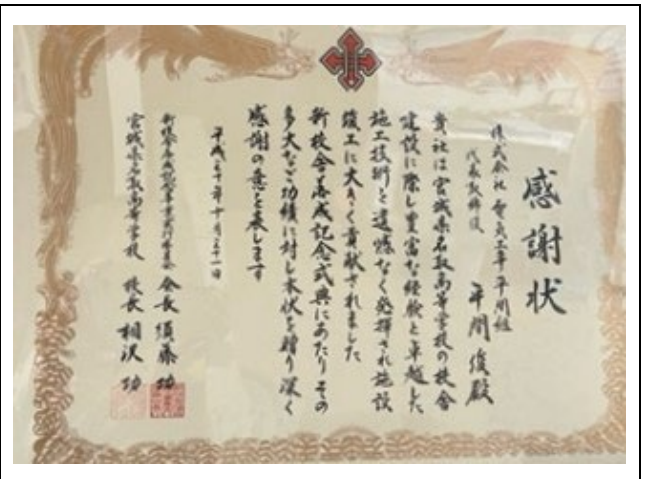 感謝状
株式会社 電気工事平間組
代表取締役 平間俊殿
貴社は宮城県名取高等学校の校舎
建設に際し豊富な経験と卓越した
施工技術を遺憾なく発揮され施設
竣工に大きく貢献されました
新校舎落成記念式典にあたりその
多大なご功績に対し本状を贈り深く
感謝の意を表します
平成三十年十月三十一日
会長 須藤 功
宮城県名取高等学校 校長 相沢 功